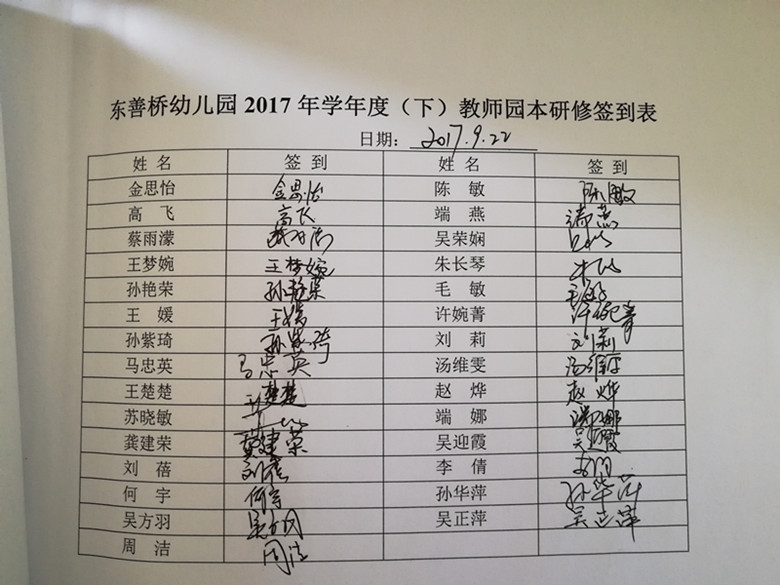 东善桥幼儿园 2017 年学年度（下）教师园本研修签到表
日期： 2017.9.22
姓 名 签 到 姓 名 签 到
金思怡 金思怡 陈 敏 陈敏
高 飞 高飞 端 燕 端燕
蔡雨濛 吴荣娴
王梦婉 王梦婉 朱长琴
孙艳荣 孙艳荣 毛 敏 毛敏
王 媛 王媛 许婉菁 许婉菁
孙紫琦 孙紫琦 刘 莉 刘莉
马忠英 马忠英 汤维雯 汤维雯
王楚楚 王楚楚 赵 烨 赵烨
苏晓敏 端 娜 端娜
龚建荣 龚建荣 吴迎霞 吴迎霞
刘 蓓 刘蓓 李 倩
何 宇 何宇 孙华萍 孙华萍
吴方羽 吴方羽 吴正萍 吴正萍
周 洁 周洁